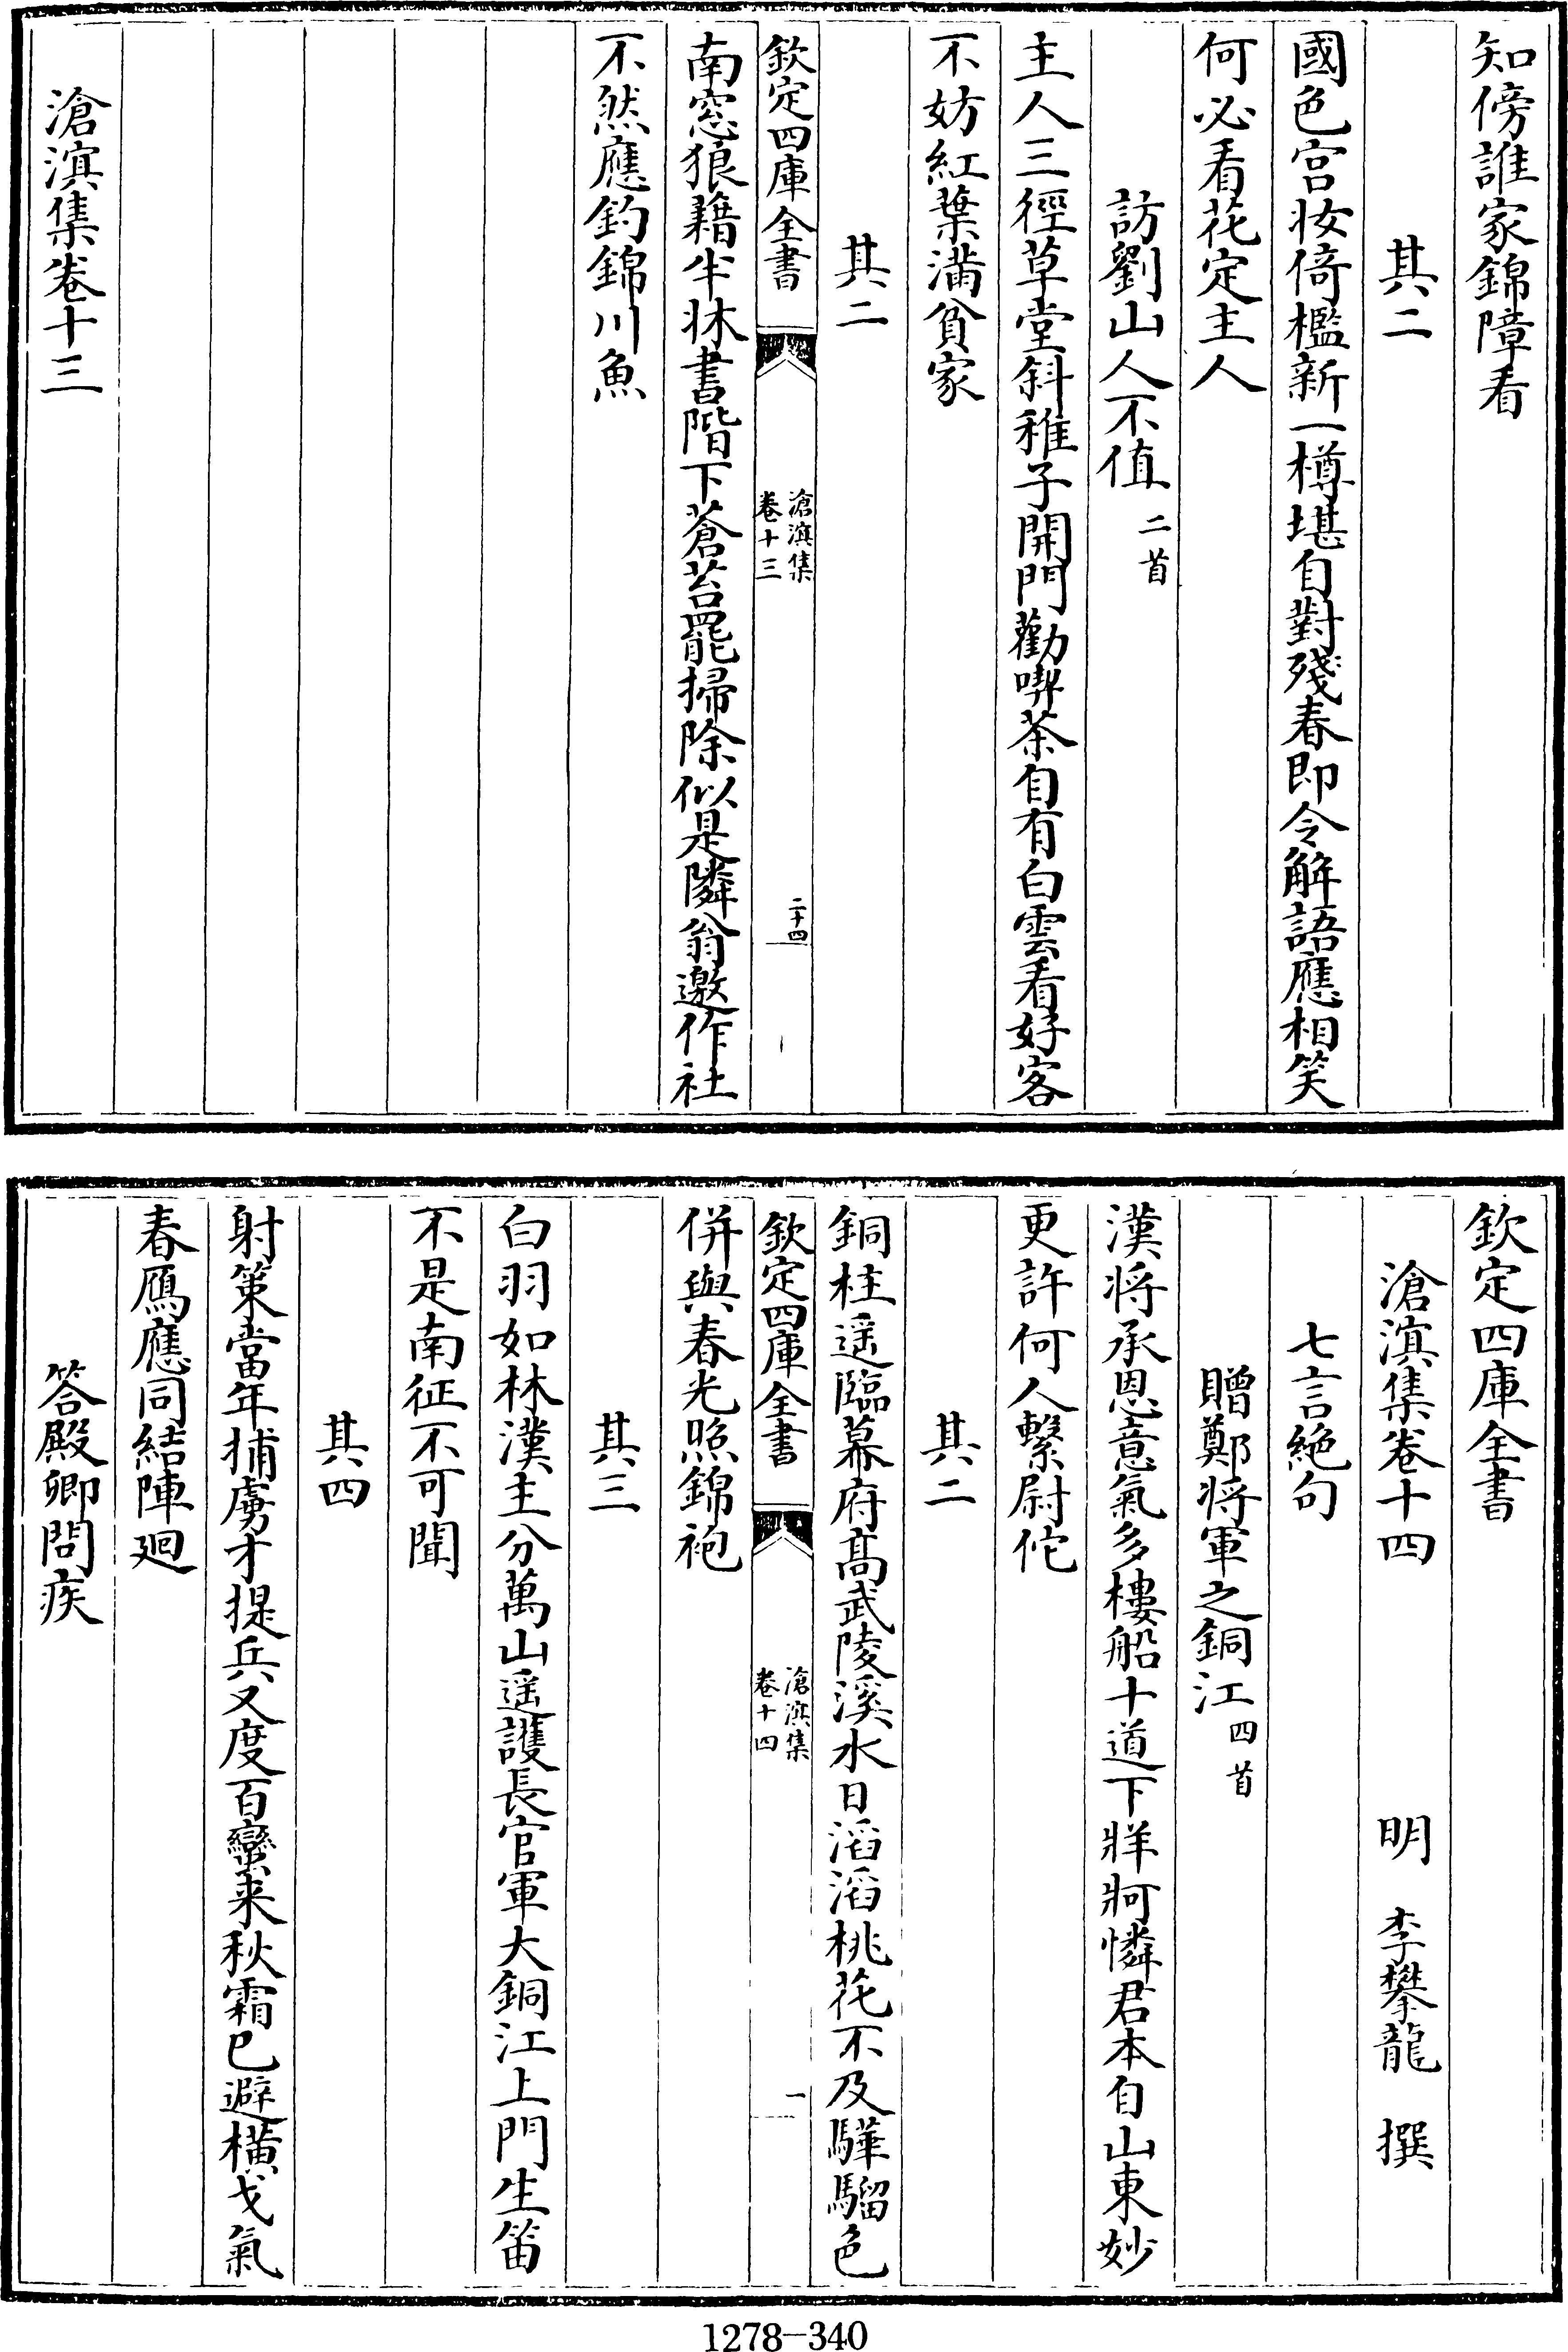 知傍誰家錦障看
其二
國色宫妝倚檻新一樽堪自對殘春即令解語應相笑
何必看花定主人
訪劉山人不值二首
主人三徑草堂斜稚子開門勸喫茶自有白雲看好客
不妨紅葉滿貧家
其二
欽定四庫全書
滄溟集
卷十三
二十四
南窓狼藉半牀書階下蒼苔罷掃除似是隣翁邀作社
不然應釣錦川魚
滄溟集卷十三
欽定四庫全書
滄溟集卷十四
明 李攀龍 撰
七言絶句
贈鄭將軍之銅江四首
漢將承恩意氣多樓船十道下牂牁憐君本自山東妙
更許何人繫尉佗
其二
銅柱遥臨幕府髙武陵溪水日滔滔桃花不及驊騮色
欽定四庫全書
滄溟集
卷十四
一
併與春光照錦袍
其三
白羽如林漢主分萬山遥護長官軍大銅江上門生笛
不是南征不可聞
其四
射策當年捕虜才提兵又度百蠻来秋霜已避横戈氣
春鴈應同結陣廻
答殿卿問疾
1278-340